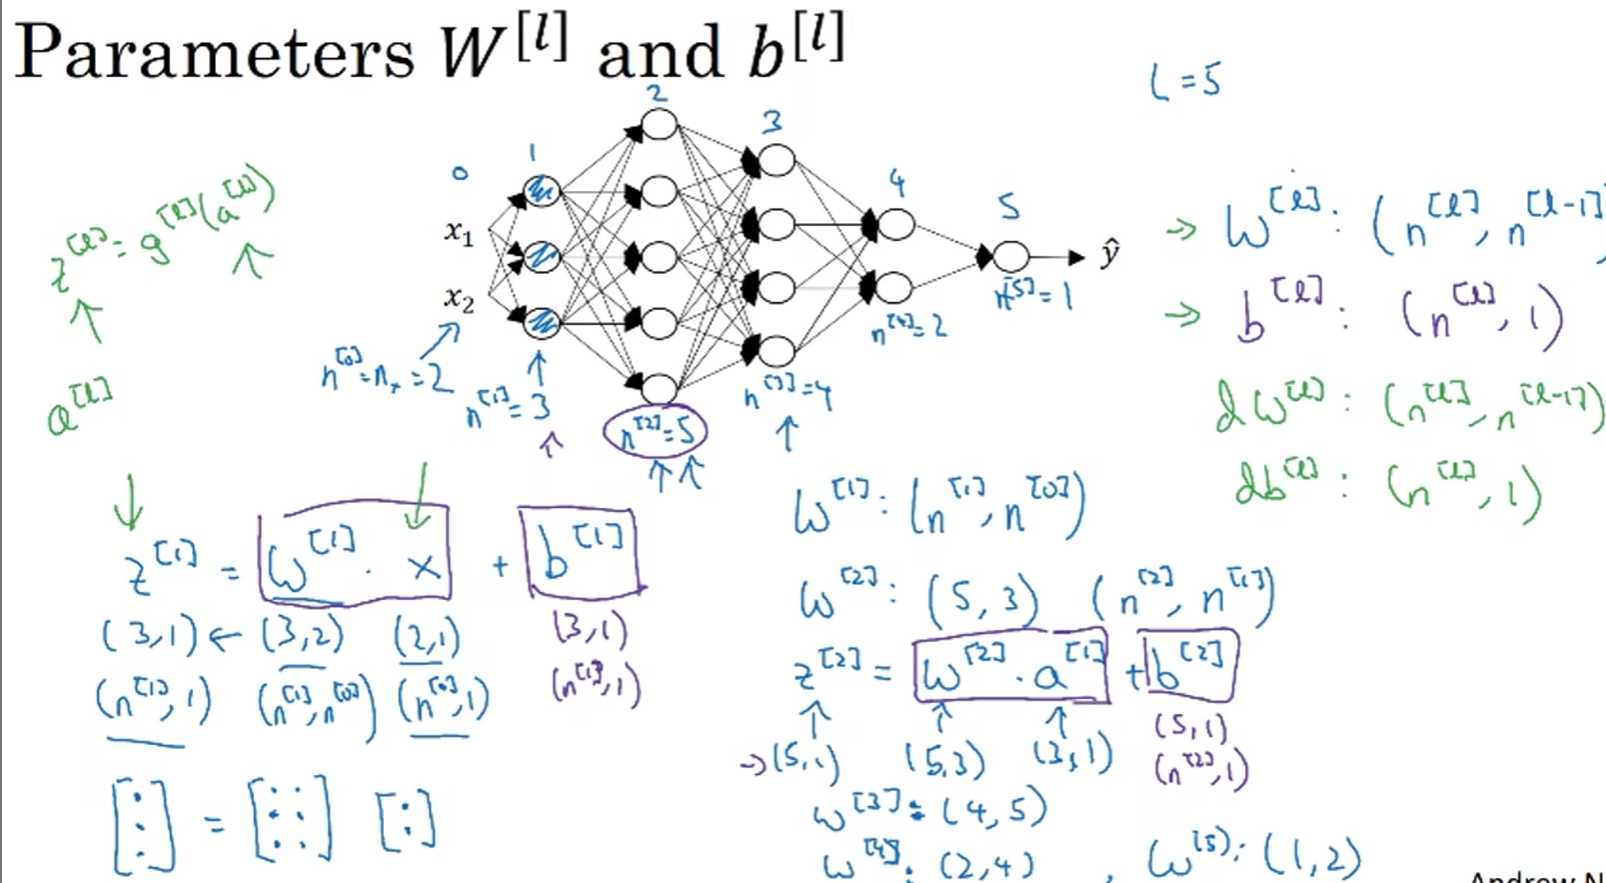 Parameters W^[l] and b^[l]
L = 5
0 1 2 3 4 5
x₁
x₂
ŷ
n^[0] = nₓ = 2
n^[1] = 3
n^[2] = 5
n^[3] = 4
n^[4] = 2
n^[5] = 1
z^[l] = g^[l](a^[l])
a^[l]
→ W^[l] : (n^[l], n^[l-1]
→ b^[l] : (n^[l], 1)
dW^[l] : (n^[l], n^[l-1])
db^[l] : (n^[l], 1)
z^[1] = W^[1] · x + b^[1]
(3,1) ← (3,2) (2,1) (3,1)
(n^[1], 1) (n^[1], n^[0]) (n^[0], 1) (n^[1], 1)
[⋮] = [: :] [:]
W^[1] : (n^[1], n^[0])
W^[2] : (5, 3) (n^[2], n^[1])
z^[2] = W^[2] · a^[1] + b^[2]
→ (5,1) (5,3) (3,1) (5,1)
(n^[2], 1)
W^[3] : (4, 5)
W^[4] : (2,4) , W^[5] : (1,2)
Andrew N